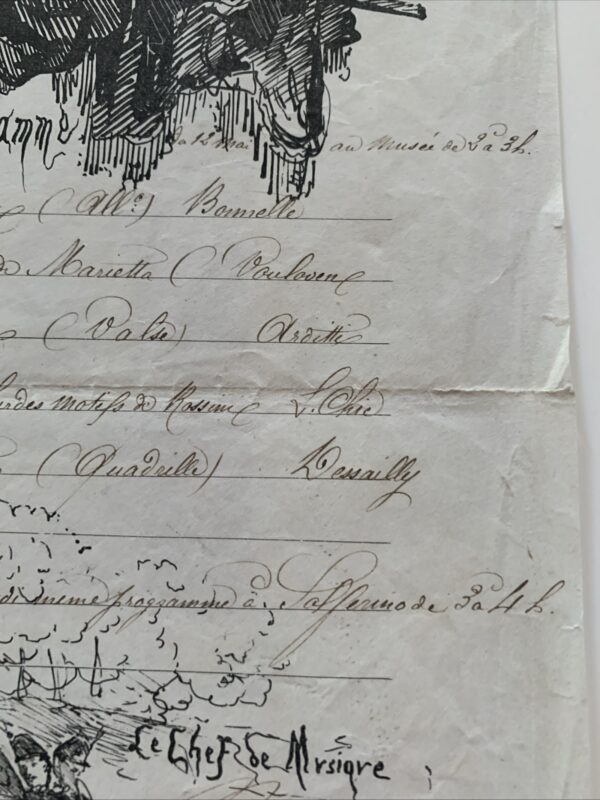 amme
du 12 mai au Musée de 2 à 3 h.
(All°) Bonnelle
de Marietta (
(Valse) Arditti
sur des motifs de Rossini L. Chic
(Quadrille) Dessailly
di même programme à Solferino de 3 à 4 h.
Le Chef de Mvsiqve